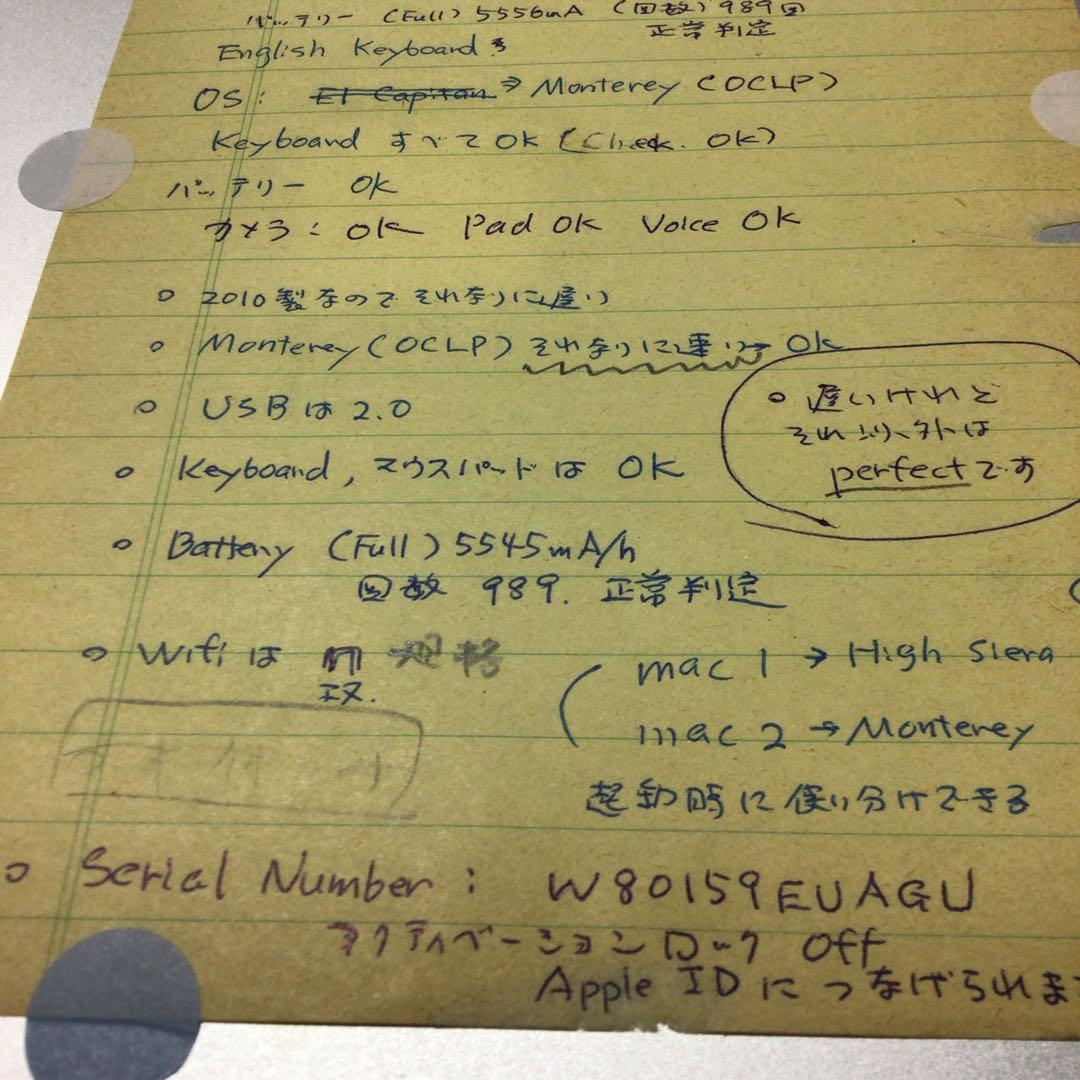 バッテリー (Full) 5556mA (回数) 989回
正常判定
English Keyboard
OS: El Capitan ⇒ Monterey (OCLP)
Keyboard すべてOK (Check OK)
バッテリー OK
カメラ: OK Pad OK Voice OK
○ 2010製なのでそれなりに遅い
○ Monterey (OCLP) それなりに速い → OK
○ USBは2.0
○ Keyboard, マウスパッドは OK
○ 遅いけれど
それ以外は
perfectです
○ Battery (Full) 5545mA/h
回数 989. 正常判定
○ Wifiは 規格
mac 1 → High Siera
mac 2 → Monterey
起動時に使い分けできる
○ Serial Number: W80159EUAGU
アクティベーションロック Off
Apple IDにつなげられま